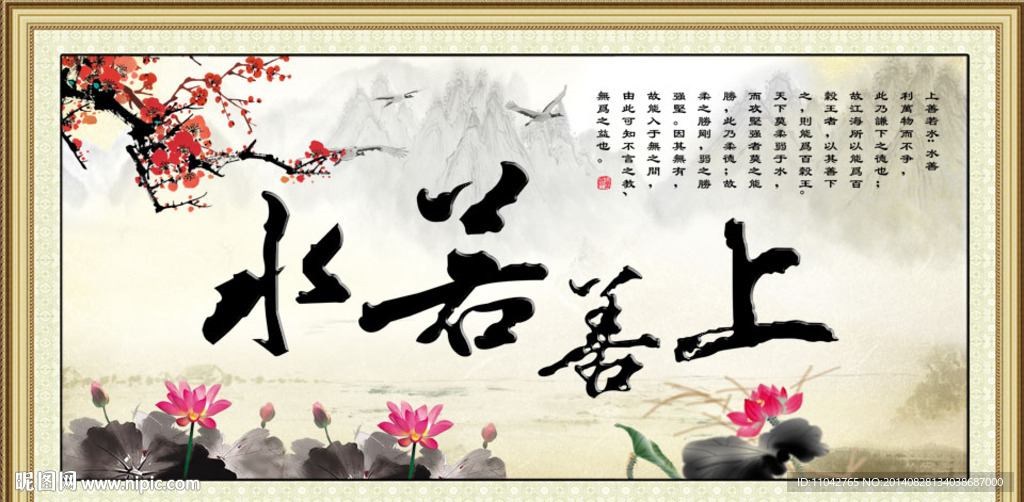 上善若水
上善若水：水善
利萬物而不爭，
此乃謙下之德也；
故江海所以能爲百
穀王者，以其善下
之，則能爲百穀王。
天下莫柔弱于水，
而攻堅强者莫之能
勝，此乃柔德；故
柔之勝剛，弱之勝
强堅。因其無有，
故能入于無之間，
由此可知不言之教、
無爲之益也。
昵图网 www.nipic.com
ID:11042765 NO:20140828134038687000